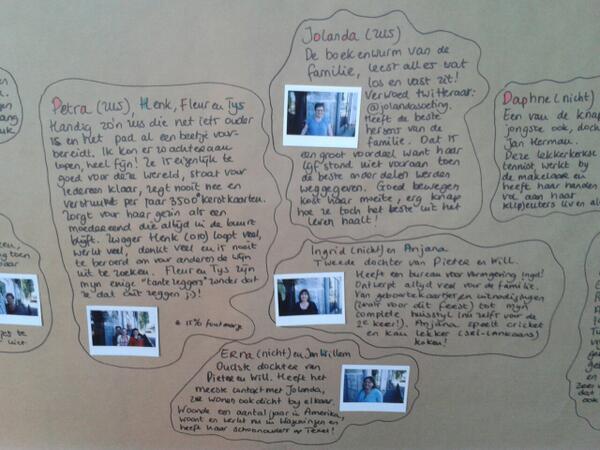 Petra (zus), Henk, Fleur en Tijs
Handig zo'n zus die net iets ouder
is en het pad al een beetje voor-
bereidt. Ik kon er zo achteraan
lopen, heel fijn! Ze is eigenlijk te
goed voor deze wereld, staat voor
iedereen klaar, zegt nooit nee en
verstuurt per jaar 3500* kerstkaarten.
Zorgt voor haar gezin als een
moedereend die altijd in de buurt
blijft. Zwager Henk (010) loopt veel,
werkt veel, denkt veel en is nooit
te beroerd om voor anderen de wijn
uit te zoeken. Fleur en Tijs zijn
mijn enige "tante zeggers" zonder dat
ze dat ooit zeggen ;)!
* 15% foutmarge
Jolanda (zus)
De boekenwurm van de
familie, leest alles wat
los en vast zit!
Verwoed twitteraar:
@jolandasoeting.
Heeft de beste
hersens van de
familie. Dat is
een groot voordeel want haar
lijf stond niet vooraan toen
de beste onderdelen werden
weggegeven. Goed bewegen
kost haar moeite, erg knap
hoe ze toch het beste uit het
leven haalt!
Daphne (nicht)
Een van de knap
jongste ook, doch
Jan Herman.
Deze lekkerkerkse
tennist werkt bij
de makelaar en
heeft haar handen
vol aan haar
kl(p)euters Liv en
Ingrid (nicht) en Anjana
Tweede dochter van Pieter en Will.
Heeft een bureau voor vormgeving Ingd!
Ontwerpt altijd veel voor de familie.
Van geboortekaartjes en uitnodigingen
(ook voor dit feest) tot mijn
complete huisstijl (nu zelfs voor de
2e keer!). Anjana speelt cricket
en kan lekker (Sri-Lankaans)
koken!
Erna (nicht) en Jan Willem
Oudste dochter van
Pieter en Will. Heeft het
meeste contact met Jolanda,
ze wonen ook dicht bij elkaar.
Woonde een aantal jaar in Amerika,
woont en werkt nu in Wageningen en
heeft haar schoonouders op Texel!